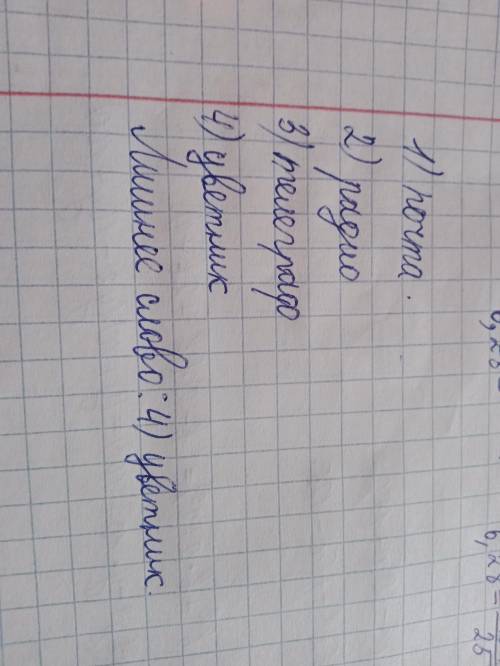 1) почта.
2) радио
3) телеграф
4) цветник
Лишнее слово: 4) цветник.